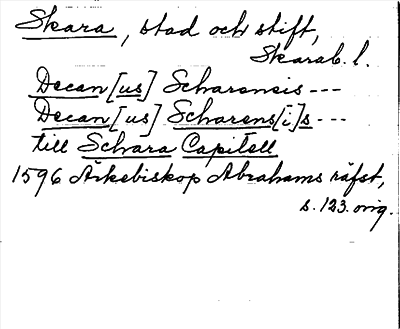 Skara, stad och stift,
Skarab. l.
Decan[us] Scharensis ---
Decan[us] Scharens[i]s ---
till Schara Capitell
1596 Ärkebiskop Abrahams räfst,
s. 123. orig.